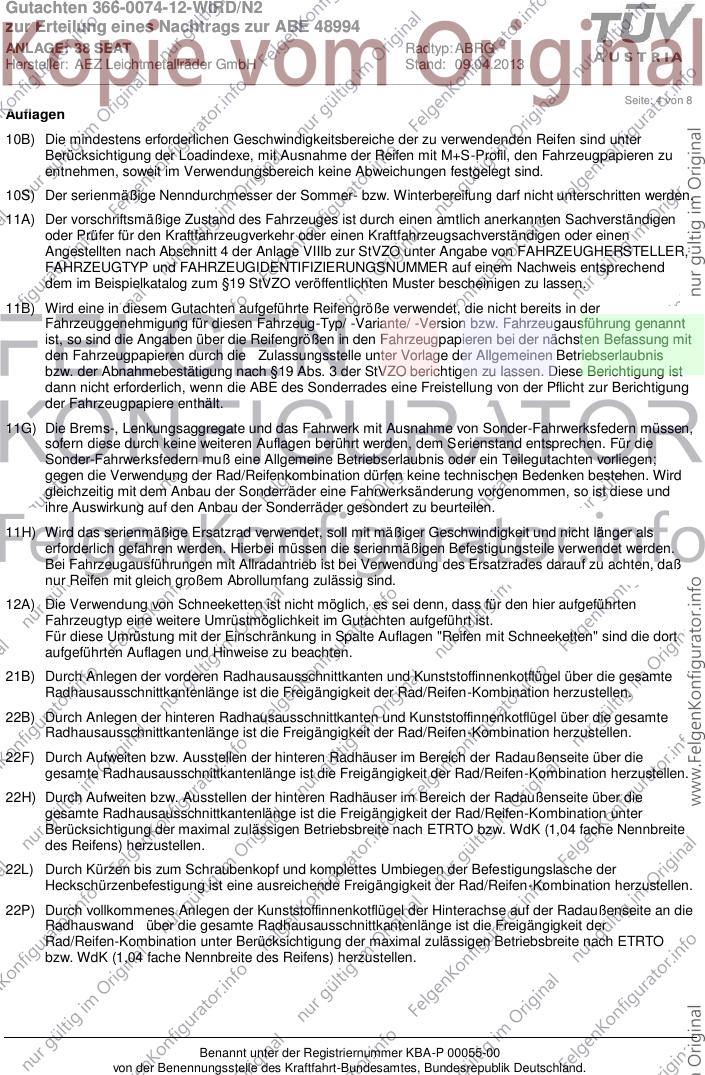 Gutachten 366-0074-12-WIRD/N2
zur Erteilung eines Nachtrags zur ABE 48994
ANLAGE: 38 SEAT
Hersteller: AEZ Leichtmetallräder GmbH
Radtyp: ABRG
Stand: 09.04.2013
TÜV
AUSTRIA
Kopie vom Original
Seite: 4 von 8
Auflagen
10B) Die mindestens erforderlichen Geschwindigkeitsbereiche der zu verwendenden Reifen sind unter
Berücksichtigung der Loadindexe, mit Ausnahme der Reifen mit M+S-Profil, den Fahrzeugpapieren zu
entnehmen, soweit im Verwendungsbereich keine Abweichungen festgelegt sind.
10S) Der serienmäßige Nenndurchmesser der Sommer- bzw. Winterbereifung darf nicht unterschritten werden.
11A) Der vorschriftsmäßige Zustand des Fahrzeuges ist durch einen amtlich anerkannten Sachverständigen
oder Prüfer für den Kraftfahrzeugverkehr oder einen Kraftfahrzeugsachverständigen oder einen
Angestellten nach Abschnitt 4 der Anlage VIIIb zur StVZO unter Angabe von FAHRZEUGHERSTELLER,
FAHRZEUGTYP und FAHRZEUGIDENTIFIZIERUNGSNUMMER auf einem Nachweis entsprechend
dem im Beispielkatalog zum §19 StVZO veröffentlichten Muster bescheinigen zu lassen.
11B) Wird eine in diesem Gutachten aufgeführte Reifengröße verwendet, die nicht bereits in der
Fahrzeuggenehmigung für diesen Fahrzeug-Typ/ -Variante/ -Version bzw. Fahrzeugausführung genannt
ist, so sind die Angaben über die Reifengrößen in den Fahrzeugpapieren bei der nächsten Befassung mit
den Fahrzeugpapieren durch die Zulassungsstelle unter Vorlage der Allgemeinen Betriebserlaubnis
bzw. der Abnahmebestätigung nach §19 Abs. 3 der StVZO berichtigen zu lassen. Diese Berichtigung ist
dann nicht erforderlich, wenn die ABE des Sonderrades eine Freistellung von der Pflicht zur Berichtigung
der Fahrzeugpapiere enthält.
11G) Die Brems-, Lenkungsaggregate und das Fahrwerk mit Ausnahme von Sonder-Fahrwerksfedern müssen,
sofern diese durch keine weiteren Auflagen berührt werden, dem Serienstand entsprechen. Für die
Sonder-Fahrwerksfedern muß eine Allgemeine Betriebserlaubnis oder ein Teilegutachten vorliegen;
gegen die Verwendung der Rad/Reifenkombination dürfen keine technischen Bedenken bestehen. Wird
gleichzeitig mit dem Anbau der Sonderräder eine Fahrwerksänderung vorgenommen, so ist diese und
ihre Auswirkung auf den Anbau der Sonderräder gesondert zu beurteilen.
11H) Wird das serienmäßige Ersatzrad verwendet, soll mit mäßiger Geschwindigkeit und nicht länger als
erforderlich gefahren werden. Hierbei müssen die serienmäßigen Befestigungsteile verwendet werden.
Bei Fahrzeugausführungen mit Allradantrieb ist bei Verwendung des Ersatzrades darauf zu achten, daß
nur Reifen mit gleich großem Abrollumfang zulässig sind.
12A) Die Verwendung von Schneeketten ist nicht möglich, es sei denn, dass für den hier aufgeführten
Fahrzeugtyp eine weitere Umrüstmöglichkeit im Gutachten aufgeführt ist.
Für diese Umrüstung mit der Einschränkung in Spalte Auflagen "Reifen mit Schneeketten" sind die dort
aufgeführten Auflagen und Hinweise zu beachten.
21B) Durch Anlegen der vorderen Radhausausschnittkanten und Kunststoffinnenkotflügel über die gesamte
Radhausausschnittkantenlänge ist die Freigängigkeit der Rad/Reifen-Kombination herzustellen.
22B) Durch Anlegen der hinteren Radhausausschnittkanten und Kunststoffinnenkotflügel über die gesamte
Radhausausschnittkantenlänge ist die Freigängigkeit der Rad/Reifen-Kombination herzustellen.
22F) Durch Aufweiten bzw. Ausstellen der hinteren Radhäuser im Bereich der Radaußenseite über die
gesamte Radhausausschnittkantenlänge ist die Freigängigkeit der Rad/Reifen-Kombination herzustellen.
22H) Durch Aufweiten bzw. Ausstellen der hinteren Radhäuser im Bereich der Radaußenseite über die
gesamte Radhausausschnittkantenlänge ist die Freigängigkeit der Rad/Reifen-Kombination unter
Berücksichtigung der maximal zulässigen Betriebsbreite nach ETRTO bzw. WdK (1,04 fache Nennbreite
des Reifens) herzustellen.
22L) Durch Kürzen bis zum Schraubenkopf und komplettes Umbiegen der Befestigungslasche der
Heckschürzenbefestigung ist eine ausreichende Freigängigkeit der Rad/Reifen-Kombination herzustellen.
22P) Durch vollkommenes Anlegen der Kunststoffinnenkotflügel der Hinterachse auf der Radaußenseite an die
Radhauswand über die gesamte Radhausausschnittkantenlänge ist die Freigängigkeit der
Rad/Reifen-Kombination unter Berücksichtigung der maximal zulässigen Betriebsbreite nach ETRTO
bzw. WdK (1,04 fache Nennbreite des Reifens) herzustellen.
FELGEN
KONFIGURATOR
FelgenKonfigurator.info
nur gültig im Original
www.FelgenKonfigurator.info
Benannt unter der Registriernummer KBA-P 00055-00
von der Benennungsstelle des Kraftfahrt-Bundesamtes, Bundesrepublik Deutschland.